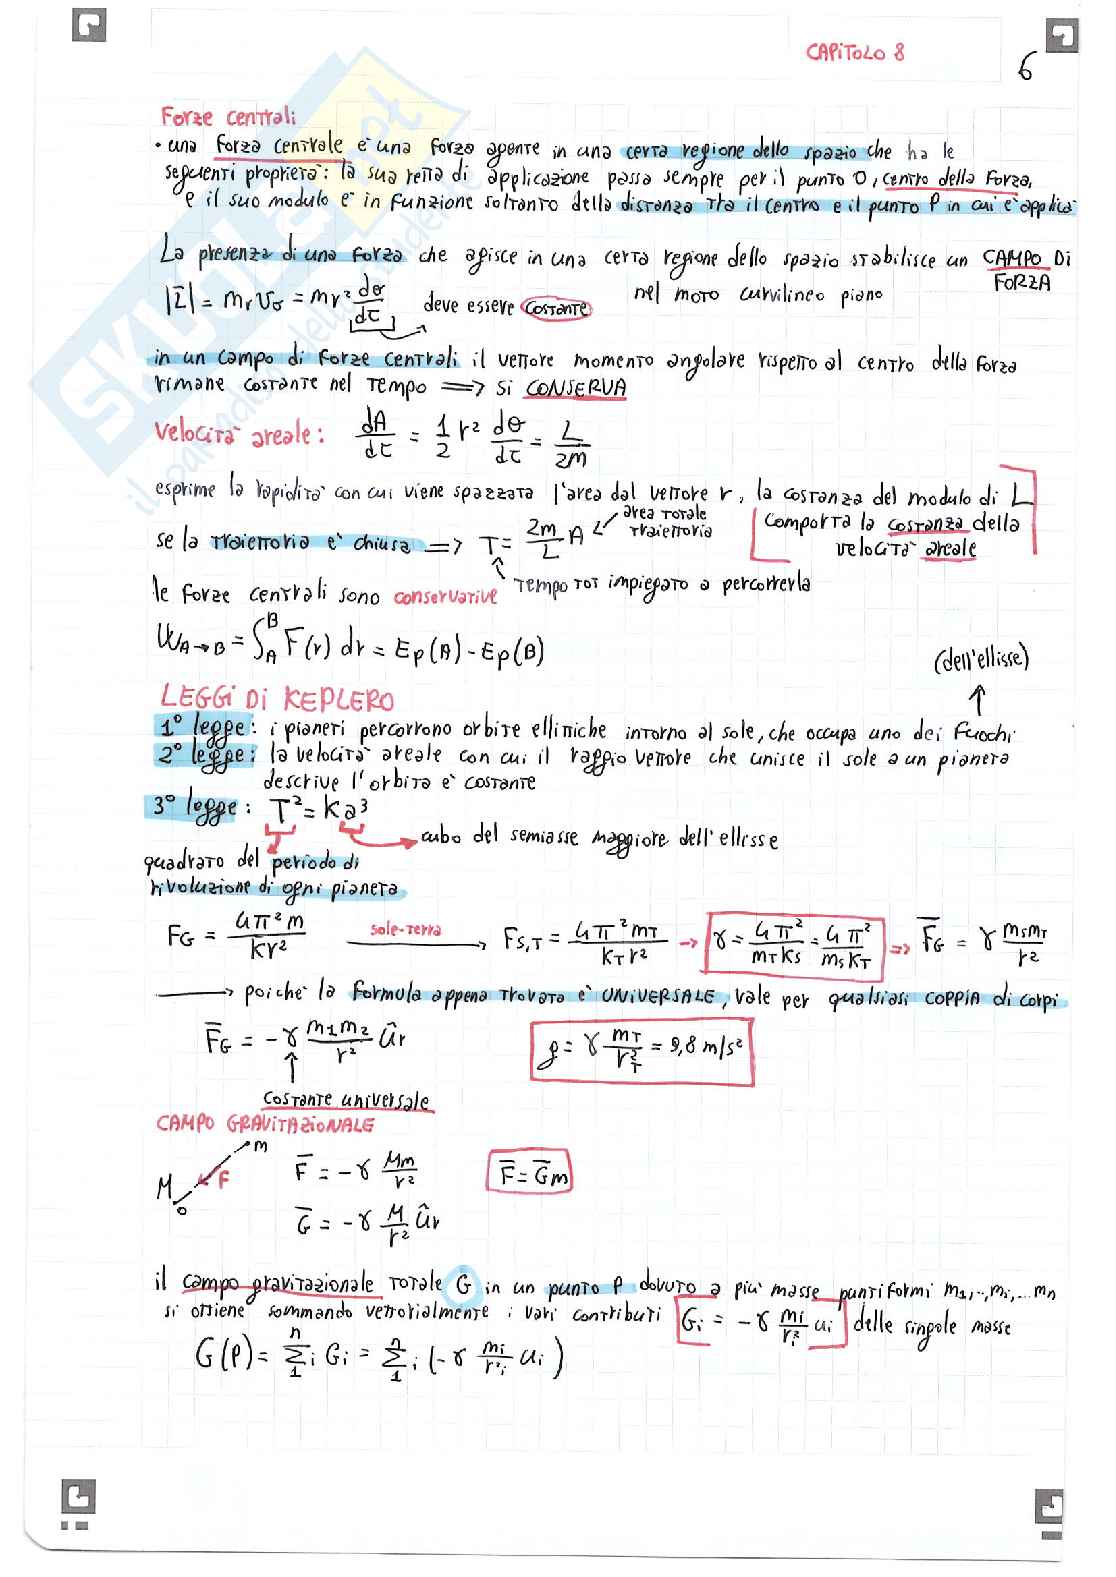 CAPITOLO 8
6
Forze centrali
• una forza centrale è una forza agente in una certa regione dello spazio che ha le
seguenti proprietà: la sua retta di applicazione passa sempre per il punto O, centro della forza,
e il suo modulo è in funzione soltanto della distanza tra il centro e il punto P in cui è applica
La presenza di una forza che agisce in una certa regione dello spazio stabilisce un CAMPO DI
FORZA
|L̄| = m r v_θ = m r² dθ/dt deve essere costante nel moto curvilineo piano
in un campo di forze centrali il vettore momento angolare rispetto al centro della forza
rimane costante nel tempo ⟹ si CONSERVA
Velocità areale: dA/dt = 1/2 r² dθ/dt = L/2m
esprime la rapidità con cui viene spazzata l'area dal vettore r, la costanza del modulo di L
comporta la costanza della
velocità areale
se la traiettoria è chiusa ⟹ T = 2m/L A ← area totale traiettoria
↖ tempo tot impiegato a percorrerla
le forze centrali sono conservative
W_A→B = ∫_A^B F(r) dr = Ep(A) - Ep(B)
(dell'ellisse)
↑
LEGGI DI KEPLERO
1° legge: i pianeti percorrono orbite ellittiche intorno al sole, che occupa uno dei fuochi
2° legge: la velocità areale con cui il raggio vettore che unisce il sole a un pianeta
descrive l'orbita è costante
3° legge: T² = K a³
cubo del semiasse maggiore dell'ellisse
quadrato del periodo di
rivoluzione di ogni pianeta
F_G = 4π²m/Kr² sole-terra → F_S,T = 4π²m_T/K_T r² → γ = 4π²/m_T K_S = 4π²/m_S K_T ⟹ F̄_G = γ m_S m_T/r²
→ poiché la formula appena trovata è UNIVERSALE, vale per qualsiasi COPPIA di corpi
F̄_G = -γ m₁m₂/r² û_r g = γ m_T/r_T² = 9,8 m/s²
↑
costante universale
CAMPO GRAVITAZIONALE
m
M
F
O
F̄ = -γ Mm/r² F̄ = Ḡm
Ḡ = -γ M/r² û_r
il campo gravitazionale totale G in un punto P dovuto a più masse puntiformi m₁,..,mᵢ,...mn
si ottiene sommando vettorialmente i vari contributi Gᵢ = -γ mᵢ/rᵢ² uᵢ delle singole masse
G(P) = Σ₁ⁿᵢ Gᵢ = Σ₁ⁿᵢ (-γ mᵢ/r²ᵢ uᵢ)
SKUOLA.net
il paradiso dello studente